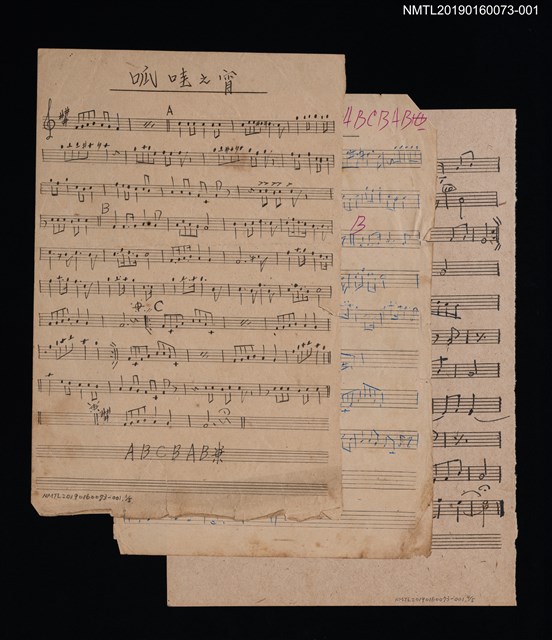 NMTL20190160073-001
呱哇之宵
A
B
C
A B C B A B
NMTL20190160073-001
A B C B A B
B
NMTL20190160073-001